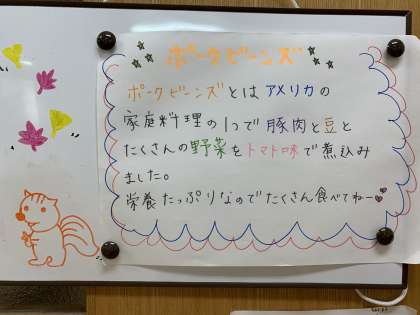 ポークビーンズ
ポークビーンズとはアメリカの
家庭料理の1つで豚肉と豆と
たくさんの野菜をトマト味で煮込み
ました。
栄養たっぷりなのでたくさん食べてねー